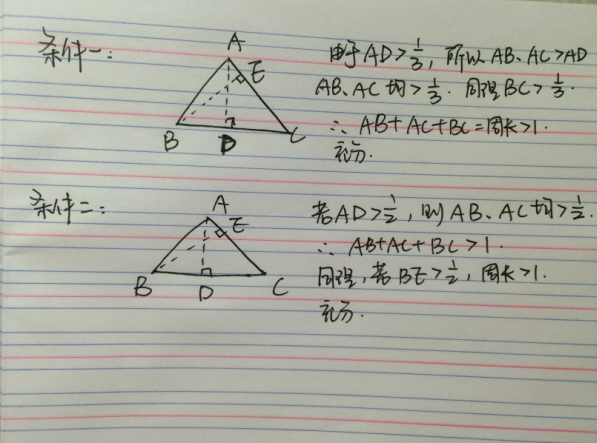 条件一:
A
E
B
D
C
由于AD>1/3, 所以AB、AC>AD
AB、AC均>1/3. 同理BC>1/3.
∴ AB+AC+BC=周长>1.
充分.
条件二:
A
E
B
D
C
若AD>1/2, 则AB、AC均>1/2.
∴ AB+AC+BC>1.
同理, 若BE>1/2, 周长>1.
充分.